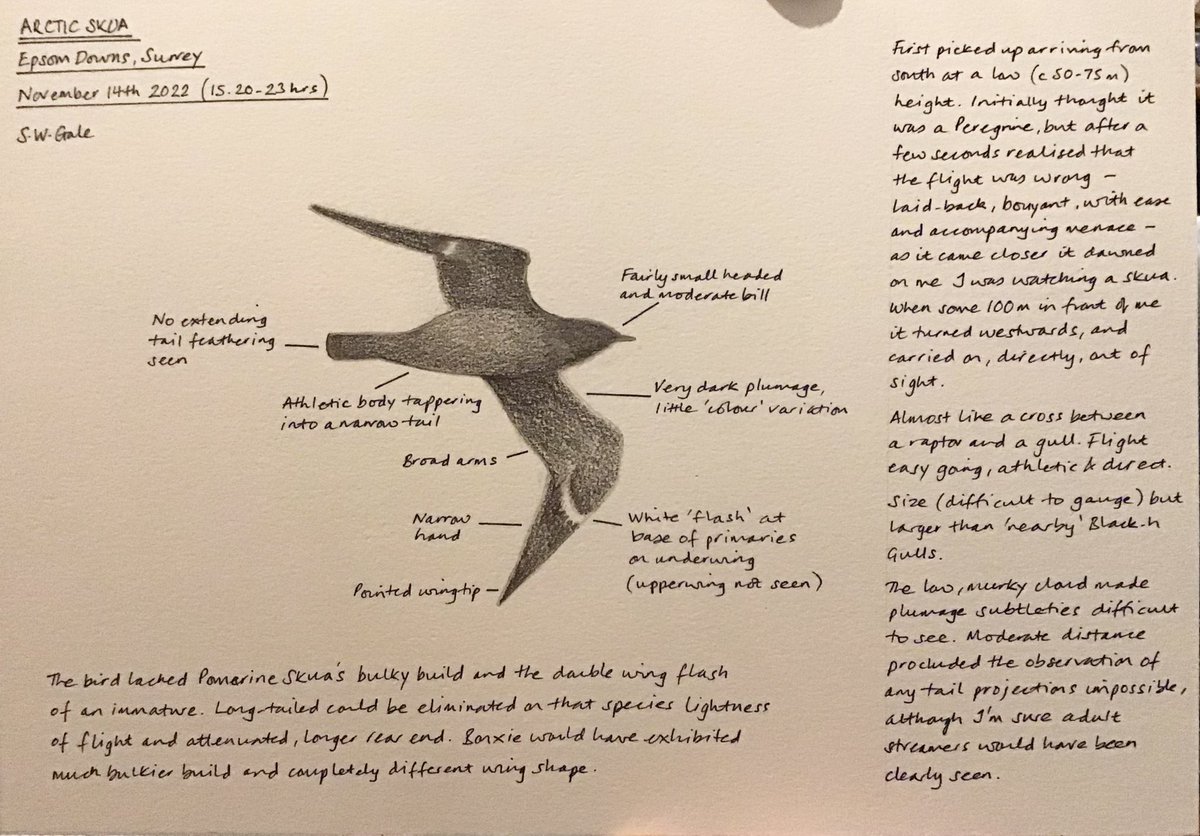 ARCTIC SKUA
Epsom Downs, Surrey
November 14th 2022 (15.20-23hrs)
S.W.Gale
No extending
tail feathering
seen
Athletic body tappering
into a narrow tail
Broad arms
Narrow
hand
Pointed wingtip
Fairly small headed
and moderate bill
Very dark plumage,
little 'colour' variation
White 'flash' at
base of primaries
on underwing
(upperwing not seen)
The bird lacked Pomarine Skua's bulky build and the double wing flash
of an immature. Long-tailed could be eliminated on that species lightness
of flight and attenuated, longer rear end. Bonxie would have exhibited
much bulkier build and completely different wing shape.
First picked up arriving from
south at a low (c50-75m)
height. Initially thought it
was a Peregrine, but after a
few seconds realised that
the flight was wrong -
laid-back, bouyant, with ease
and accompanying menace -
as it came closer it dawned
on me I was watching a skua.
When some 100m in front of me
it turned westwards, and
carried on, directly, out of
sight.
Almost like a cross between
a raptor and a gull. Flight
easy going, athletic & direct.
Size (difficult to gauge) but
larger than 'nearby' Black-h
Gulls.
The low, murky cloud made
plumage subtleties difficult
to see. Moderate distance
procluded the observation of
any tail projections impossible,
although I'm sure adult
streamers would have been
clearly seen.